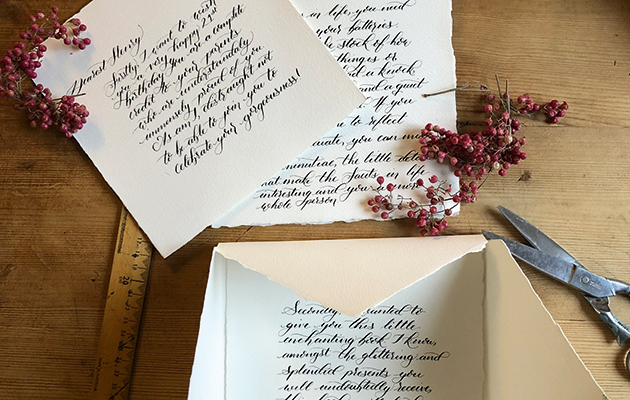 Dearest Henry
Firstly, I want to wish
you a very happy 21st
Birthday you are a complete
credit to your parents
who are understandably
immensely proud of you
As am I, distraught not
to be able to join you to
celebrate your gorgeousness!
in life, you need
your batteries.
stock of how
things or
and a knock
and a quiet
If you
to reflect
you can mis
minutiae, the little det
at make the facts in life
interesting and you a
whole person
Secondly wanted to
give you this little
enchanting book I know,
amongst the glittering and
splendid presents you
will undoubtedly receive,